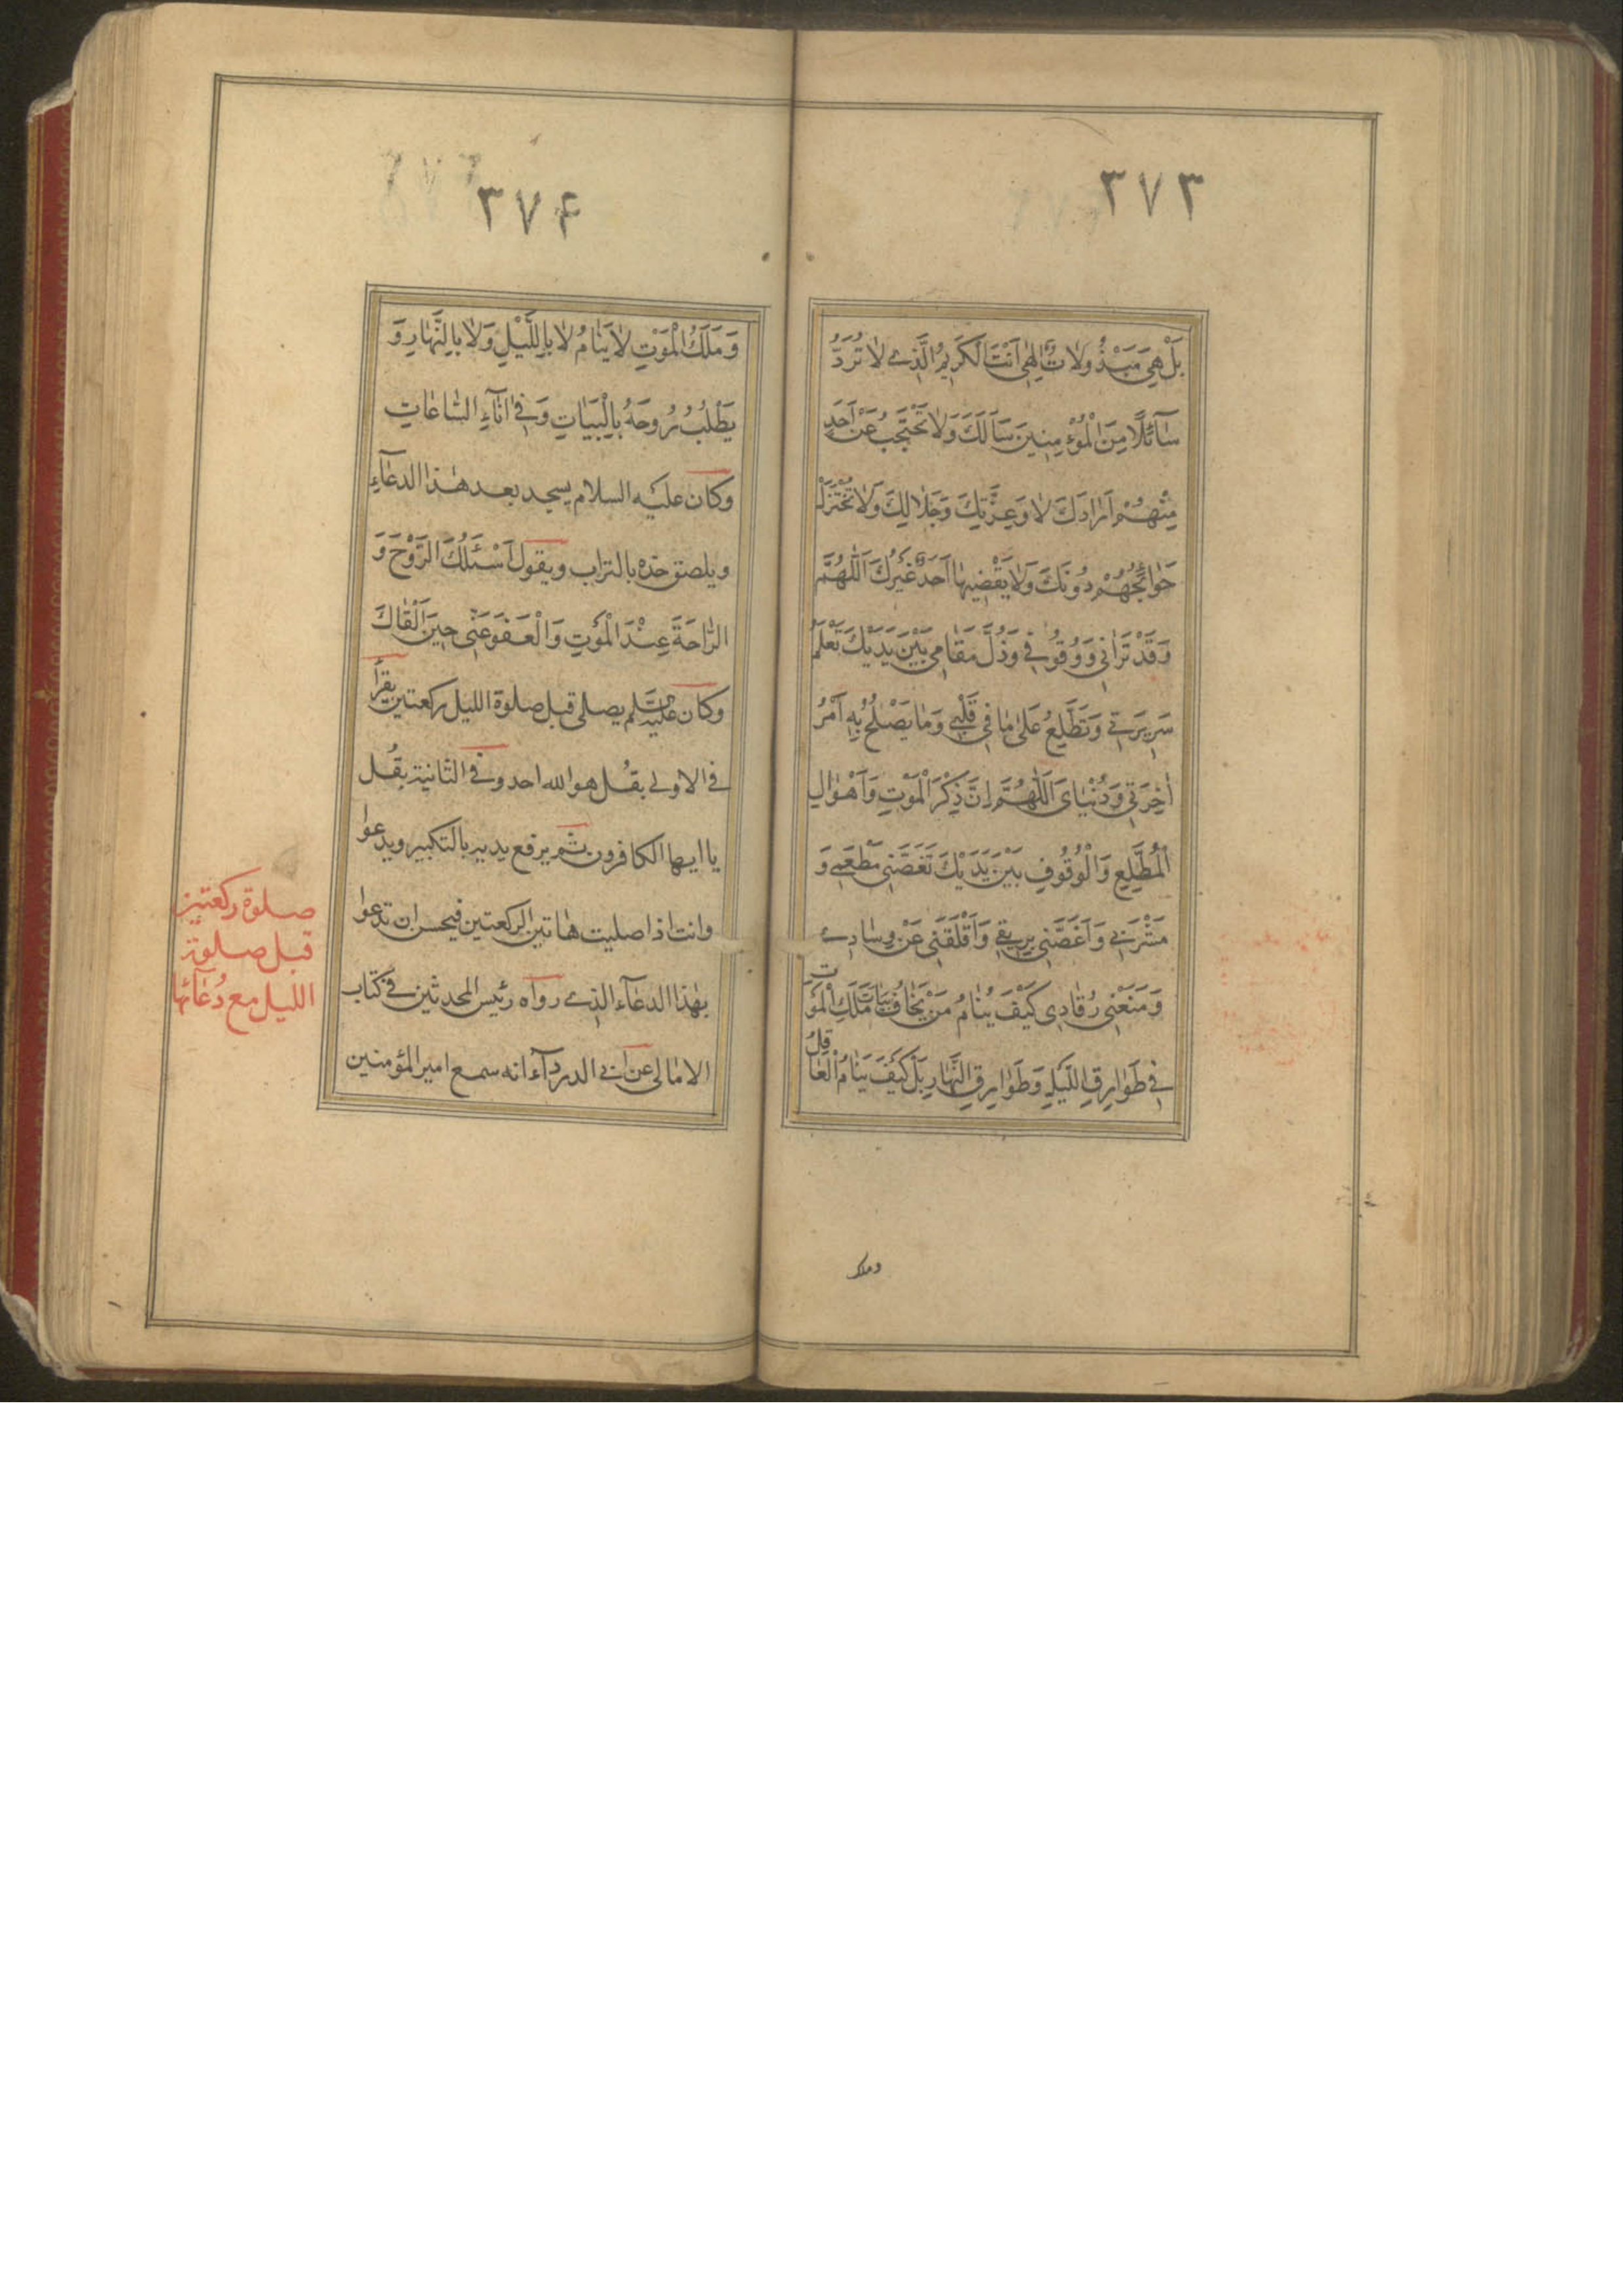 ٣٧٣
بَلْ هِيَ مَبْذُولَاتٌ اِلٰهِى اَنْتَ الْكَرِيمُ الَّذِى لَا تَرُدُّ
سَآئِلًا مِنَ الْمُؤْمِنِينَ سَاَلَكَ وَلَا تَحْتَجِبُ عَنْ اَحَدٍ
مِنْهُمْ اَرَادَكَ لَا وَعِزَّتِكَ وَجَلَالِكَ وَلَا تُخْتَزَلُ
حَوَائِجُهُمْ دُونَكَ وَلَا يَقْضِيهَا اَحَدٌ غَيْرُكَ اَللّٰهُمَّ
وَقَدْ تَرَانِى وَوُقُوفِى وَذُلَّ مَقَامِى بَيْنَ يَدَيْكَ تَعْلَمُ
سَرِيرَتِى وَتَطَّلِعُ عَلٰى مَا فِى قَلْبِى وَمَا يَصْلُحُ بِهِ اَمْرُ
اٰخِرَتِى وَدُنْيَاىَ اَللّٰهُمَّ اِنَّ ذِكْرَ الْمَوْتِ وَاَهْوَالِ
الْمُطَّلَعِ وَالْوُقُوفِ بَيْنَ يَدَيْكَ نَغَّصَنِى مَطْعَمِى وَ
مَشْرَبِى وَاَغَصَّنِى بِرِيقِى وَاَقْلَقَنِى عَنْ وِسَادِى
وَمَنَعَنِى رُقَادِى كَيْفَ يَنَامُ مَنْ يَخَافُ بَيَاتَ مَلَكِ الْمَوْتِ
فِى طَوَارِقِ اللَّيْلِ وَطَوَارِقِ النَّهَارِ بَلْ كَيْفَ يَنَامُ الْعَاقِلُ
وملك
٣٧۴
وَمَلَكُ الْمَوْتِ لَا يَنَامُ لَا بِاللَّيْلِ وَلَا بِالنَّهَارِ وَ
يَطْلُبُ رُوحَهُ بِالْبَيَاتِ وَفِى اٰنَآءِ السَّاعَاتِ
وكان عليه السلام يسجد بعد هذا الدعآء
ويلصق خده بالتراب ويقول اَسْئَلُكَ الرَّوْحَ وَ
الرَّاحَةَ عِنْدَ الْمَوْتِ وَالْعَفْوَ عَنِّى حِينَ اَلْقَاكَ
وكان عليه السلم يصلى قبل صلوة الليل ركعتين يقرأ
فى الاولى بقُل هو الله احد وفى الثانية بقُل
يا ايها الكافرون ثم يرفع يديه بالتكبير ويدعوا
وانت اذا صليت هاتين الركعتين فيحسن ان تدعوا
بهذا الدعآء الذى رواه رئيس المحدثين فى كتاب
الامالى عن ابى الدردآء انه سمع امير المؤمنين
صلوة ركعتين
قبل صلوة
الليل مع دُعآئها